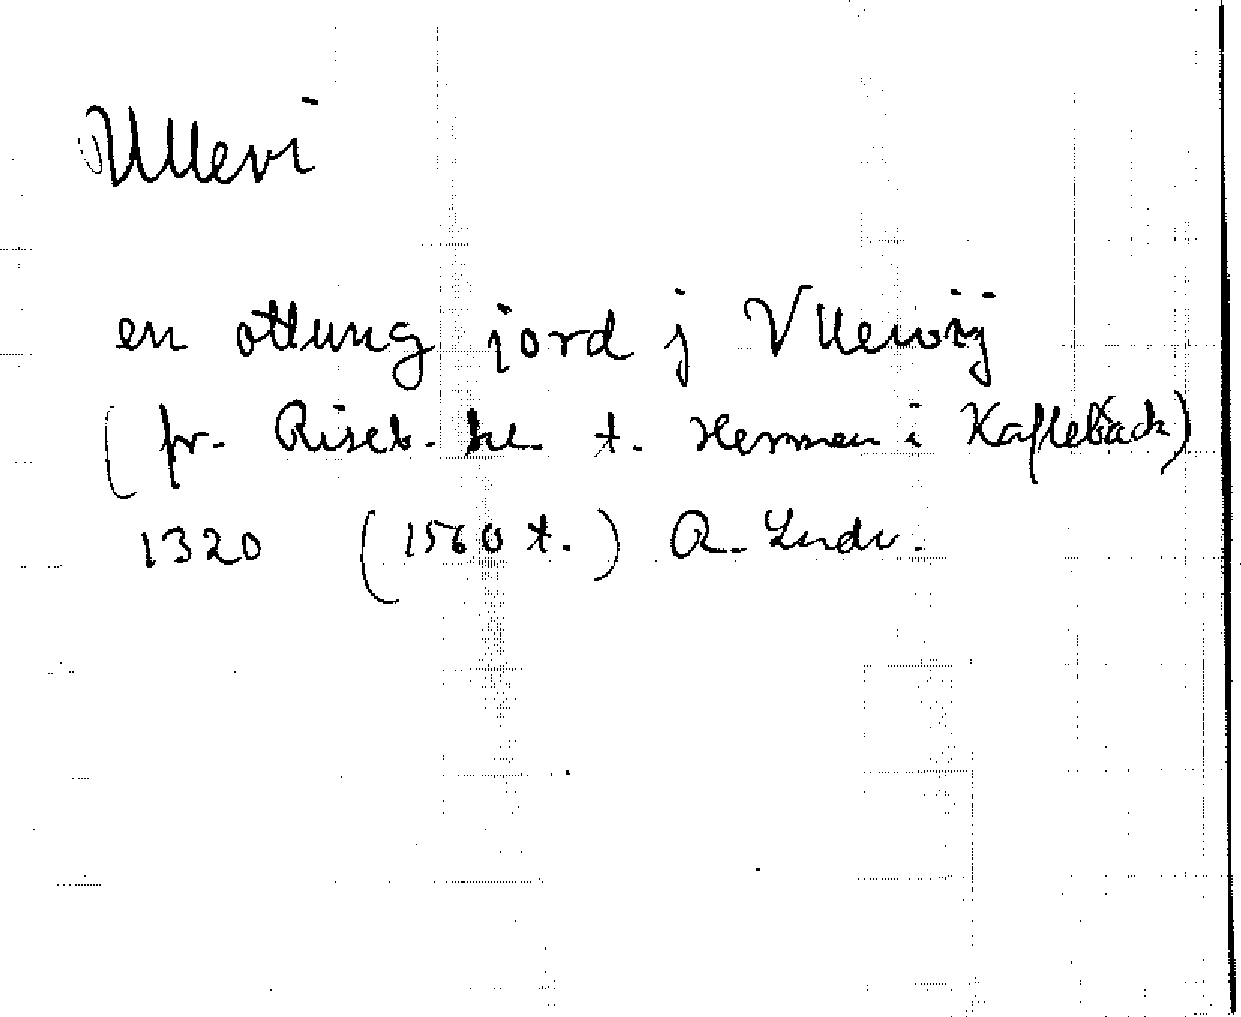 Ullevi
en ottung jord j Vllewij
(fr. Riseb. kl t. Hemmen i Kaflebäck)
1320 (1560 t.) A. Lindv.